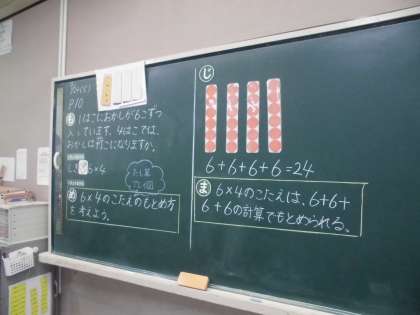 P10
も 1はこにおかしが6こずつ
入っています。4はこでは、
おかしは何こになりますか。
しき 6×4
たし算
め 6×4のこたえのもとめ方
を考えよう。
じ
6+6+6+6=24
ま 6×4のこたえは、6+6+
6+6の計算でもとめられる。